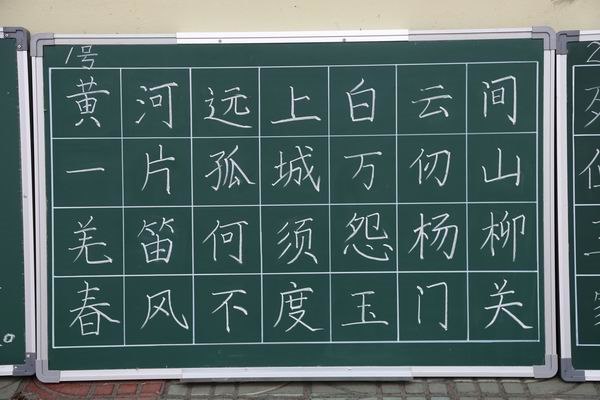 1号
黄河远上白云间
一片孤城万仞山
羌笛何须怨杨柳
春风不度玉门关